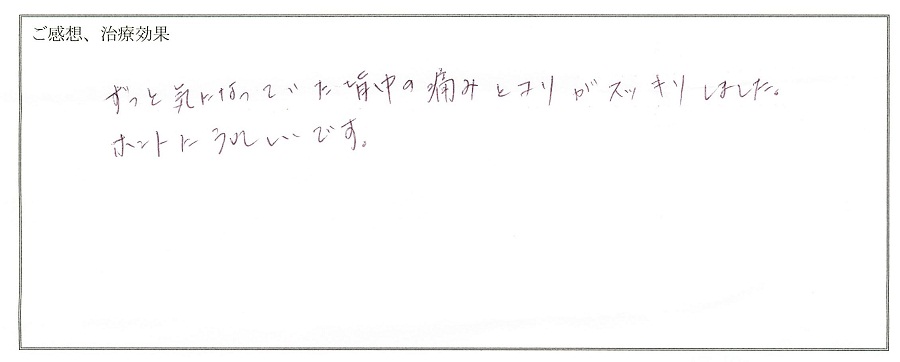 ご感想、治療効果
ずっと気になっていた背中の痛みとコリがスッキリしました。
ホントにうれしいです。